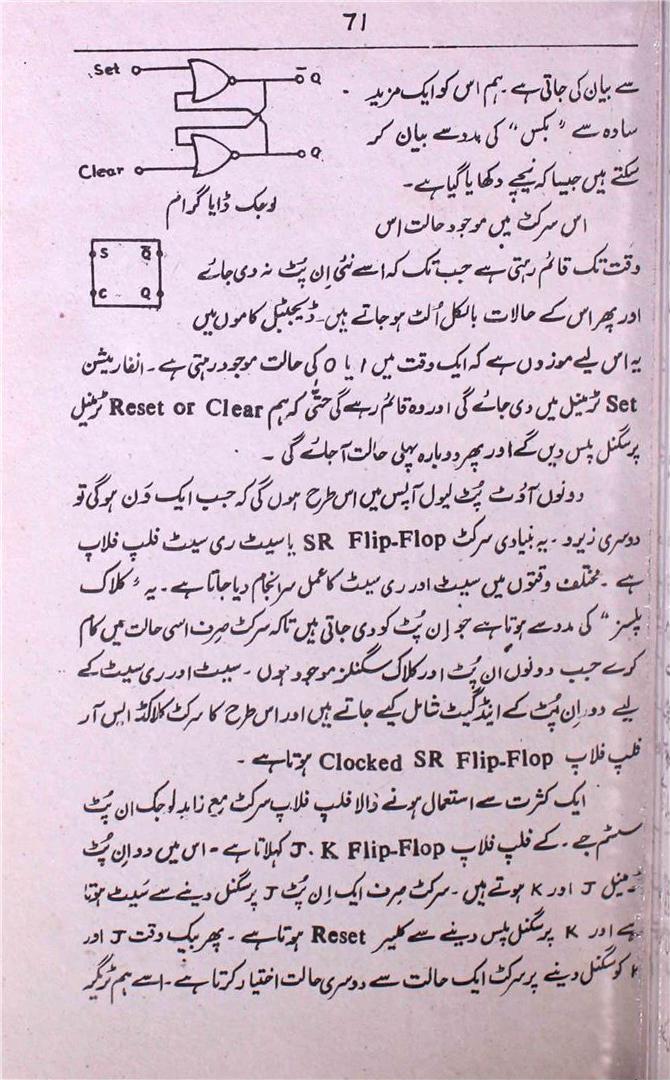 71
Set
Q̄
Q
Clear
لوجک ڈایا گرام
S Q̄
C Q
سے بیان کی جاتی ہے۔ ہم اس کو ایک مزید
سادہ سے ”بکس“ کی مدد سے بیان کر
سکتے ہیں جیسا کہ نیچے دکھایا گیا ہے۔
اس سرکٹ میں موجود حالت اس
وقت تک قائم رہتی ہے جب تک کہ اسے نئی اِن پُٹ نہ دی جائے
اور پھر اس کے حالات بالکل اُلٹ ہو جاتے ہیں۔ ڈیجیٹل کاموں میں
یہ اس لیے موزوں ہے کہ ایک وقت میں 1 یا 0 کی حالت موجود رہتی ہے۔ انفارمیشن
Set ٹرمینل میں دی جائے گی اور وہ قائم رہے گی حتیٰ کہ ہم Reset or Clear ٹرمینل
پر سگنل پلس دیں گے اور پھر دوبارہ پہلی حالت آ جائے گی ۔
دونوں آؤٹ پُٹ لیول آپس میں اس طرح ہوں گی کہ جب ایک وَن ہو گی تو
دوسری زیرو۔ یہ بنیادی سرکٹ SR Flip-Flop یا سیٹ ری سیٹ فلپ فلاپ
ہے ۔ مختلف وقتوں میں سیٹ اور ری سیٹ کا عمل سرانجام دیا جاتا ہے۔ یہ ”کلاک
پلسز“ کی مدد سے ہوتا ہے جو اِن پُٹ کو دی جاتی ہیں تاکہ سرکٹ صرف اسی حالت میں کام
کرے جب دونوں ان پُٹ اور کلاک سگنلز موجود ہوں ۔ سیٹ اور ری سیٹ کے
لیے دو اِن پُٹ کے اینڈ گیٹ شامل کیے جاتے ہیں اور اس طرح کا سرکٹ کلاکڈ ایس آر
فلپ فلاپ Clocked SR Flip-Flop ہوتا ہے ۔
ایک کثرت سے استعمال ہونے والا فلپ فلاپ سرکٹ مع زاہد لوجک ان پُٹ
سسٹم جے ۔ کے فلپ فلاپ J. K Flip-Flop کہلاتا ہے ۔ اس میں دو اِن پُٹ
ٹرمینل J اور K ہوتے ہیں ۔ سرکٹ صرف ایک اِن پُٹ J پر سگنل دینے سے سَیٹ ہوتا
ہے اور K پر سگنل پلس دینے سے کلیر Reset ہوتا ہے ۔ پھر بیک وقت J اور
K کو سگنل دینے پر سرکٹ ایک حالت سے دوسری حالت اختیار کرتا ہے۔ اسے ہم ٹریگر